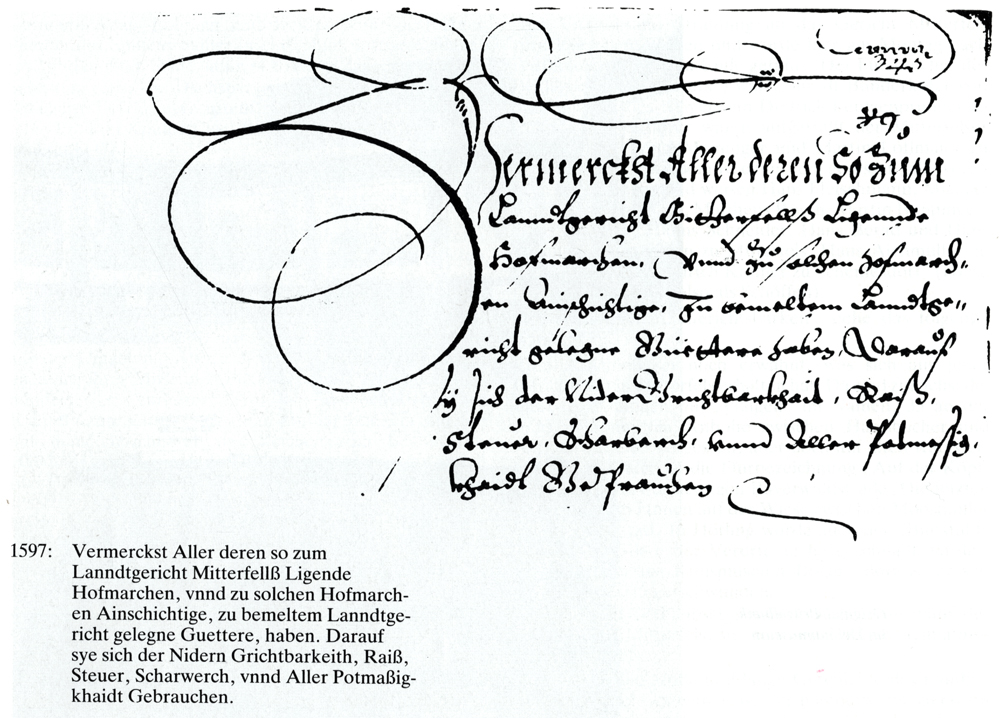 Vermerckst Aller deren So Zum
Lanndtgericht Mitterfellß Ligennde
Hofmarchen, Vnnd zu solchen Hofmarch=
en Ainschichtige, zu gemeltem Lanndtge=
richt gelegne Güettere haben, Darauf
sÿ sich der Nider Grichtbarkhait, Raiß,
Steuer, Scharberch, vnnd Aller Potmessig=
khaidt Geprauchen
1597: Vermerckst Aller deren so zum
Lanndtgericht Mitterfellß Ligende
Hofmarchen, vnnd zu solchen Hofmarch-
en Ainschichtige, zu bemeltem Lanndtge-
richt gelegne Guettere, haben. Darauf
sye sich der Nidern Grichtbarkeith, Raiß,
Steuer, Scharwerch, vnnd Aller Potmaßig-
khaidt Gebrauchen.